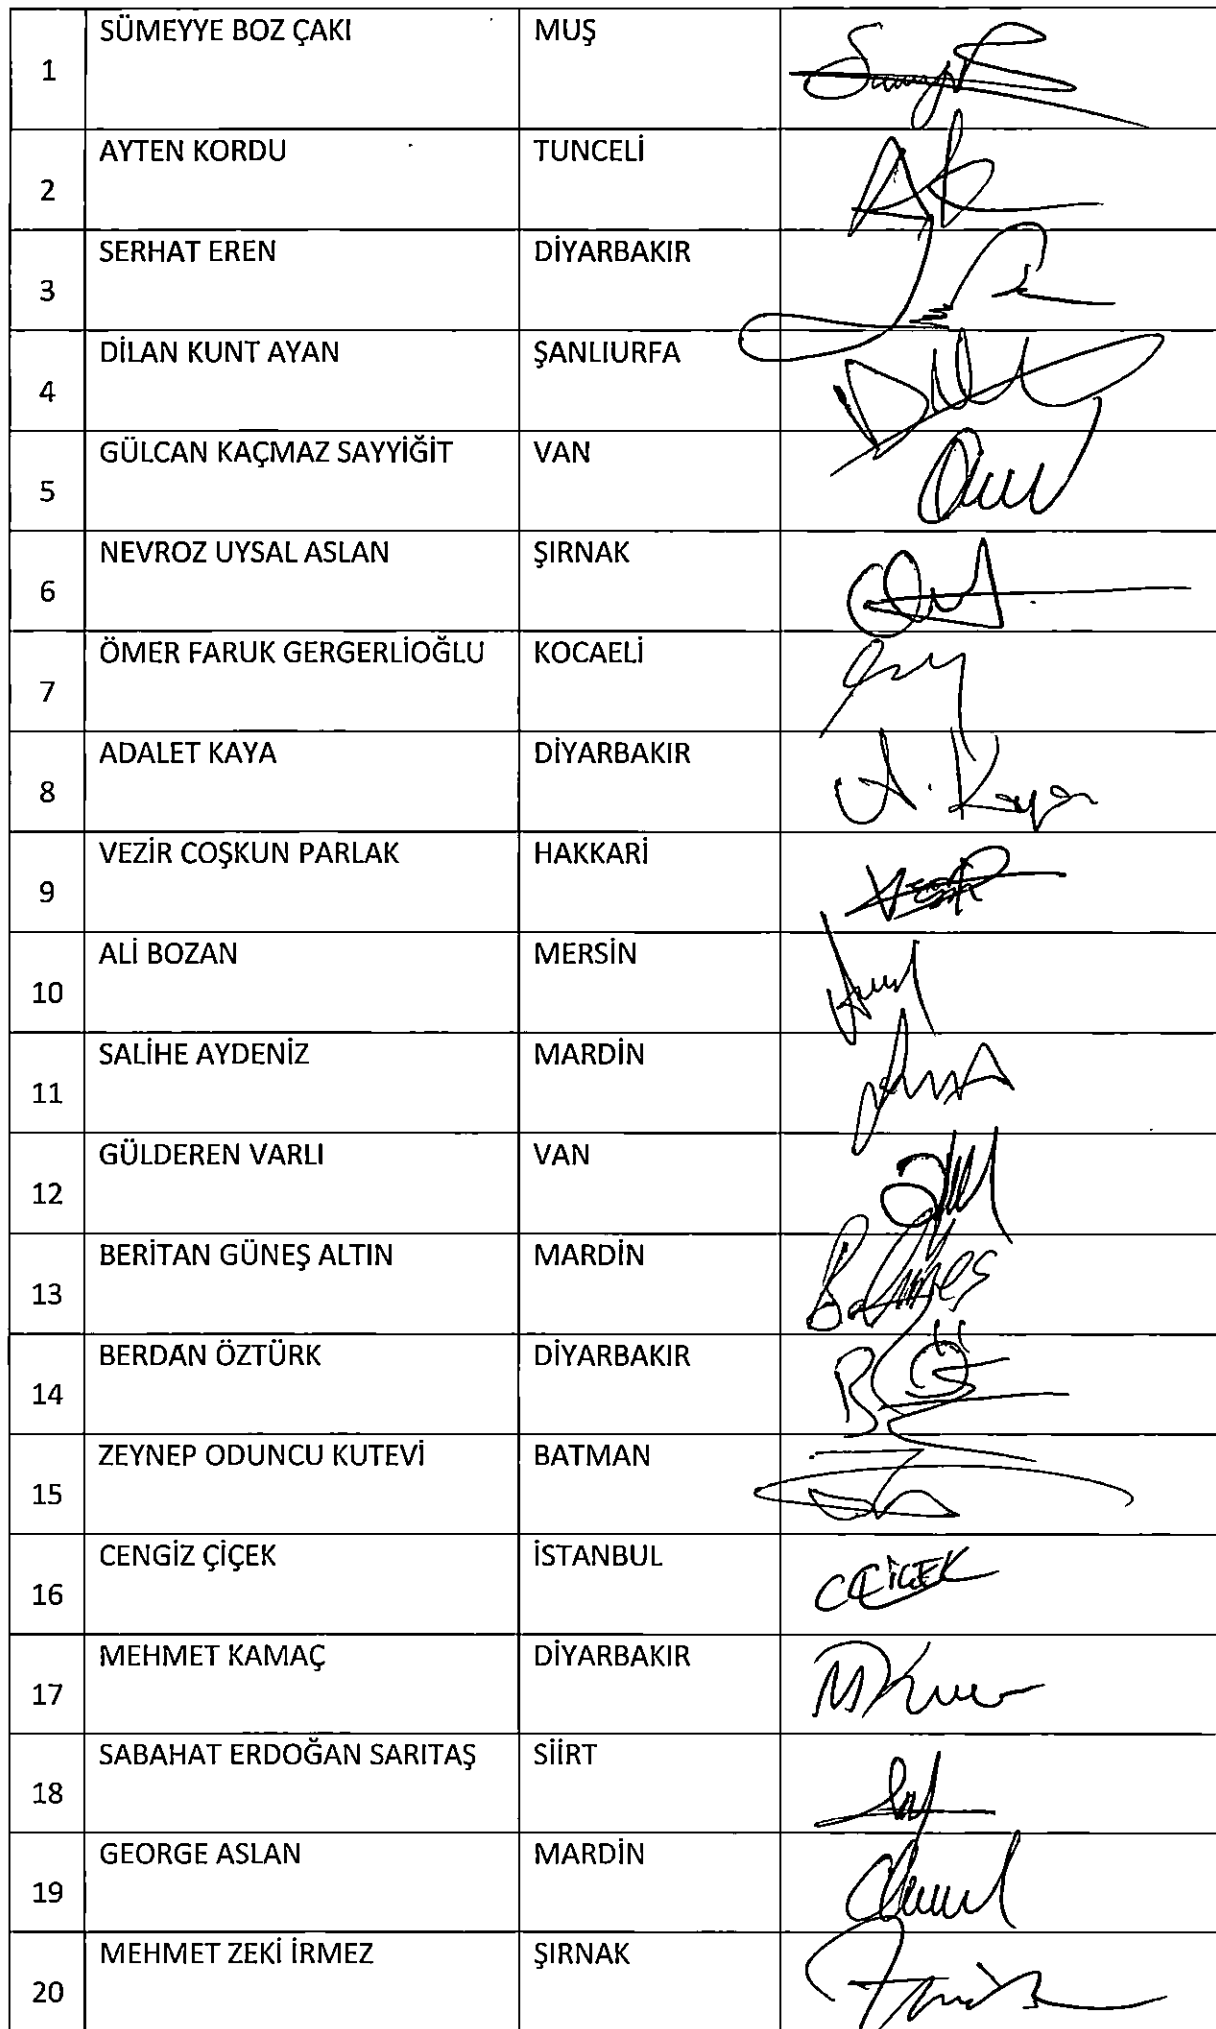 1 SÜMEYYE BOZ ÇAKI MUŞ
2 AYTEN KORDU TUNCELİ
3 SERHAT EREN DİYARBAKIR
4 DİLAN KUNT AYAN ŞANLIURFA
5 GÜLCAN KAÇMAZ SAYYİĞİT VAN
6 NEVROZ UYSAL ASLAN ŞIRNAK
7 ÖMER FARUK GERGERLİOĞLU KOCAELİ
8 ADALET KAYA DİYARBAKIR A. Kaya
9 VEZİR COŞKUN PARLAK HAKKARİ
10 ALİ BOZAN MERSİN
11 SALİHE AYDENİZ MARDİN
12 GÜLDEREN VARLI VAN
13 BERİTAN GÜNEŞ ALTIN MARDİN
14 BERDAN ÖZTÜRK DİYARBAKIR
15 ZEYNEP ODUNCU KUTEVİ BATMAN
16 CENGİZ ÇİÇEK İSTANBUL CÇİÇEK
17 MEHMET KAMAÇ DİYARBAKIR
18 SABAHAT ERDOĞAN SARITAŞ SİİRT
19 GEORGE ASLAN MARDİN
20 MEHMET ZEKİ İRMEZ ŞIRNAK